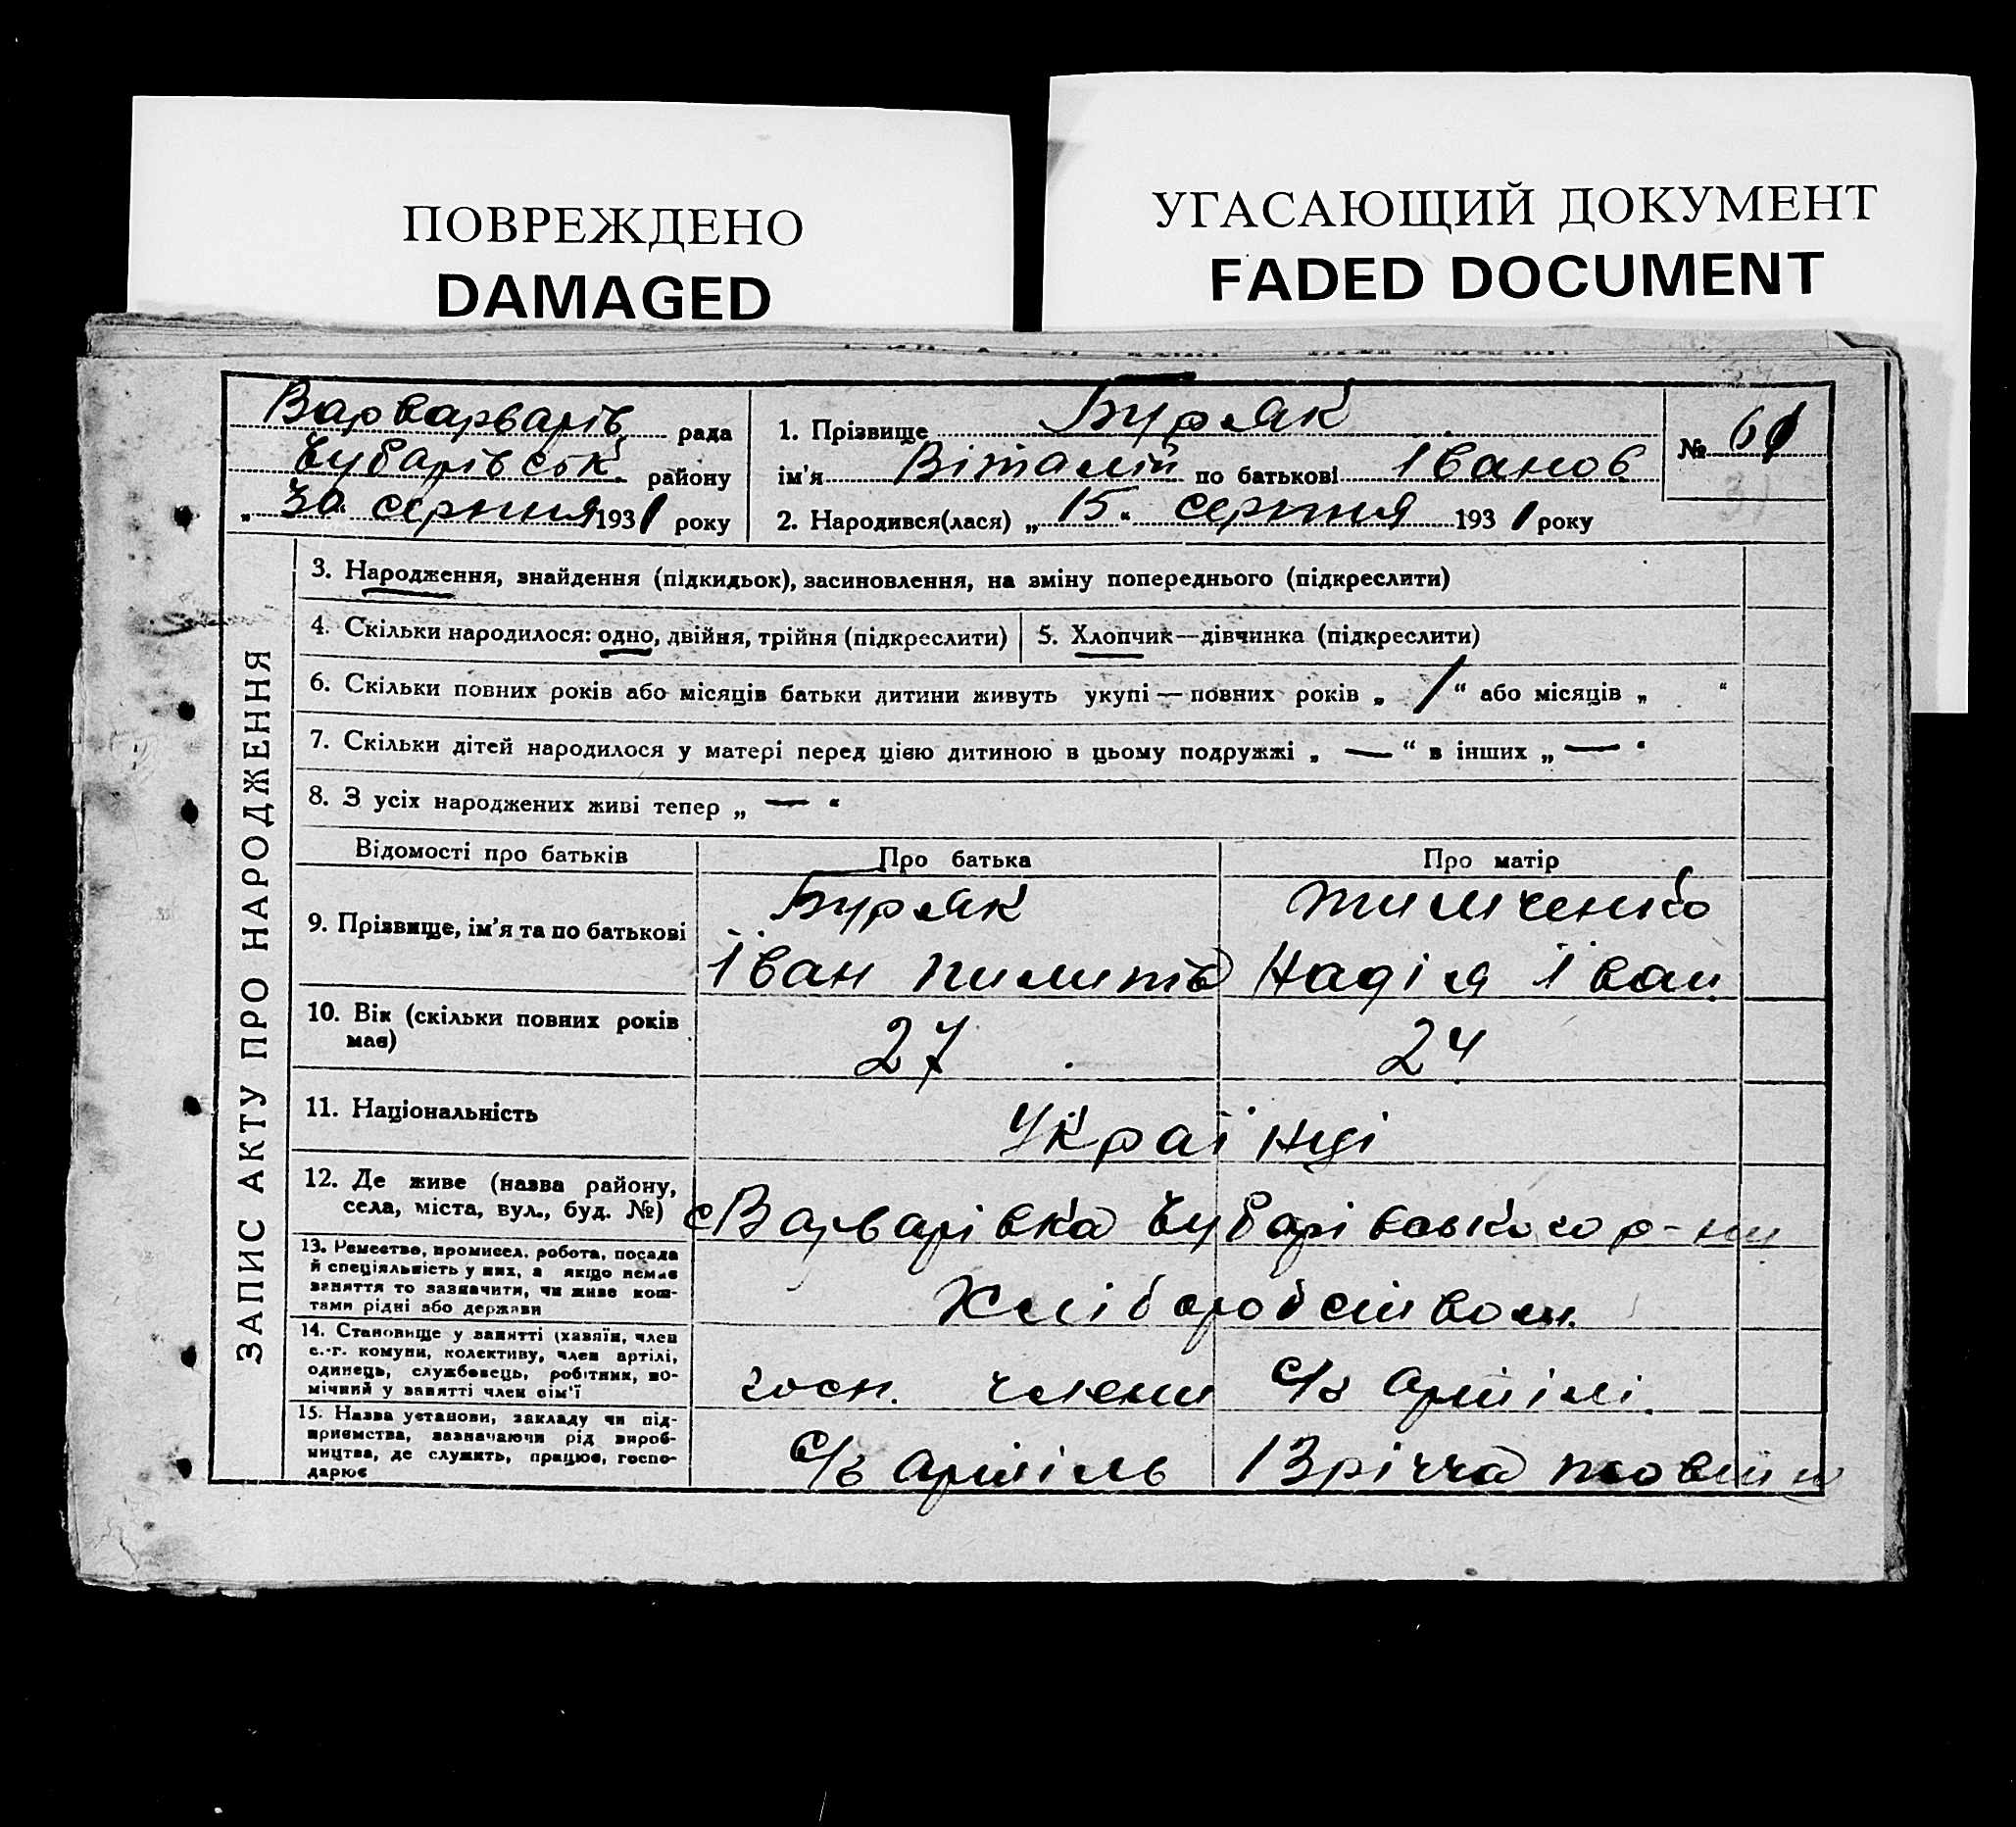 ПОВРЕЖДЕНО
DAMAGED
УГАСАЮЩИЙ ДОКУМЕНТ
FADED DOCUMENT
Варварварів рада
Чубарівськ району
„ 30 серпня 1931 року
1. Прізвище Буряк
ім'я Віталій по батькові Іванов
2. Народився(лася) „ 15 “ серпня 1931 року
№ 61
31
ЗАПИС АКТУ ПРО НАРОДЖЕННЯ
3. Народження, знайдення (підкидьок), засиновлення, на зміну попереднього (підкреслити)
4. Скільки народилося: одно, двійня, трійня (підкреслити)
5. Хлопчик—дівчинка (підкреслити)
6. Скільки повних років або місяців батьки дитини живуть укупі — повних років „ 1 “ або місяців „ “
7. Скільки дітей народилося у матері перед цією дитиною в цьому подружжі „ — “ в інших „ — “
8. З усіх народжених живі тепер „ — “
Відомості про батьків
Про батька
Про матір
9. Прізвище, ім'я та по батькові
Буряк
Іван Пилипів
Тимченко
Надія Іван
10. Вік (скільки повних років
має)
27
24
11. Національність
Українці
12. Де живе (назва району,
села, міста, вул., буд. №)
с Варварівка Чубарівського р-ну
13. Ремество, промисел, робота, посада
й спеціяльність у них, а якщо немає
заняття то зазначити, чи живе кош-
тами рідні або держави
Хліборобством
14. Становище у занятті (хазяїн, член
с.-г. комуни, колективу, член артілі,
одинець, службовець, робітник, по-
мічний у занятті член сім'ї
госп. члени с/г артілі.
15. Назва установи, закладу чи під-
приємства, зазначаючи рід вироб-
ництва, де служить, працює, госпо-
дарює
с/г артіль 13річча жовтня